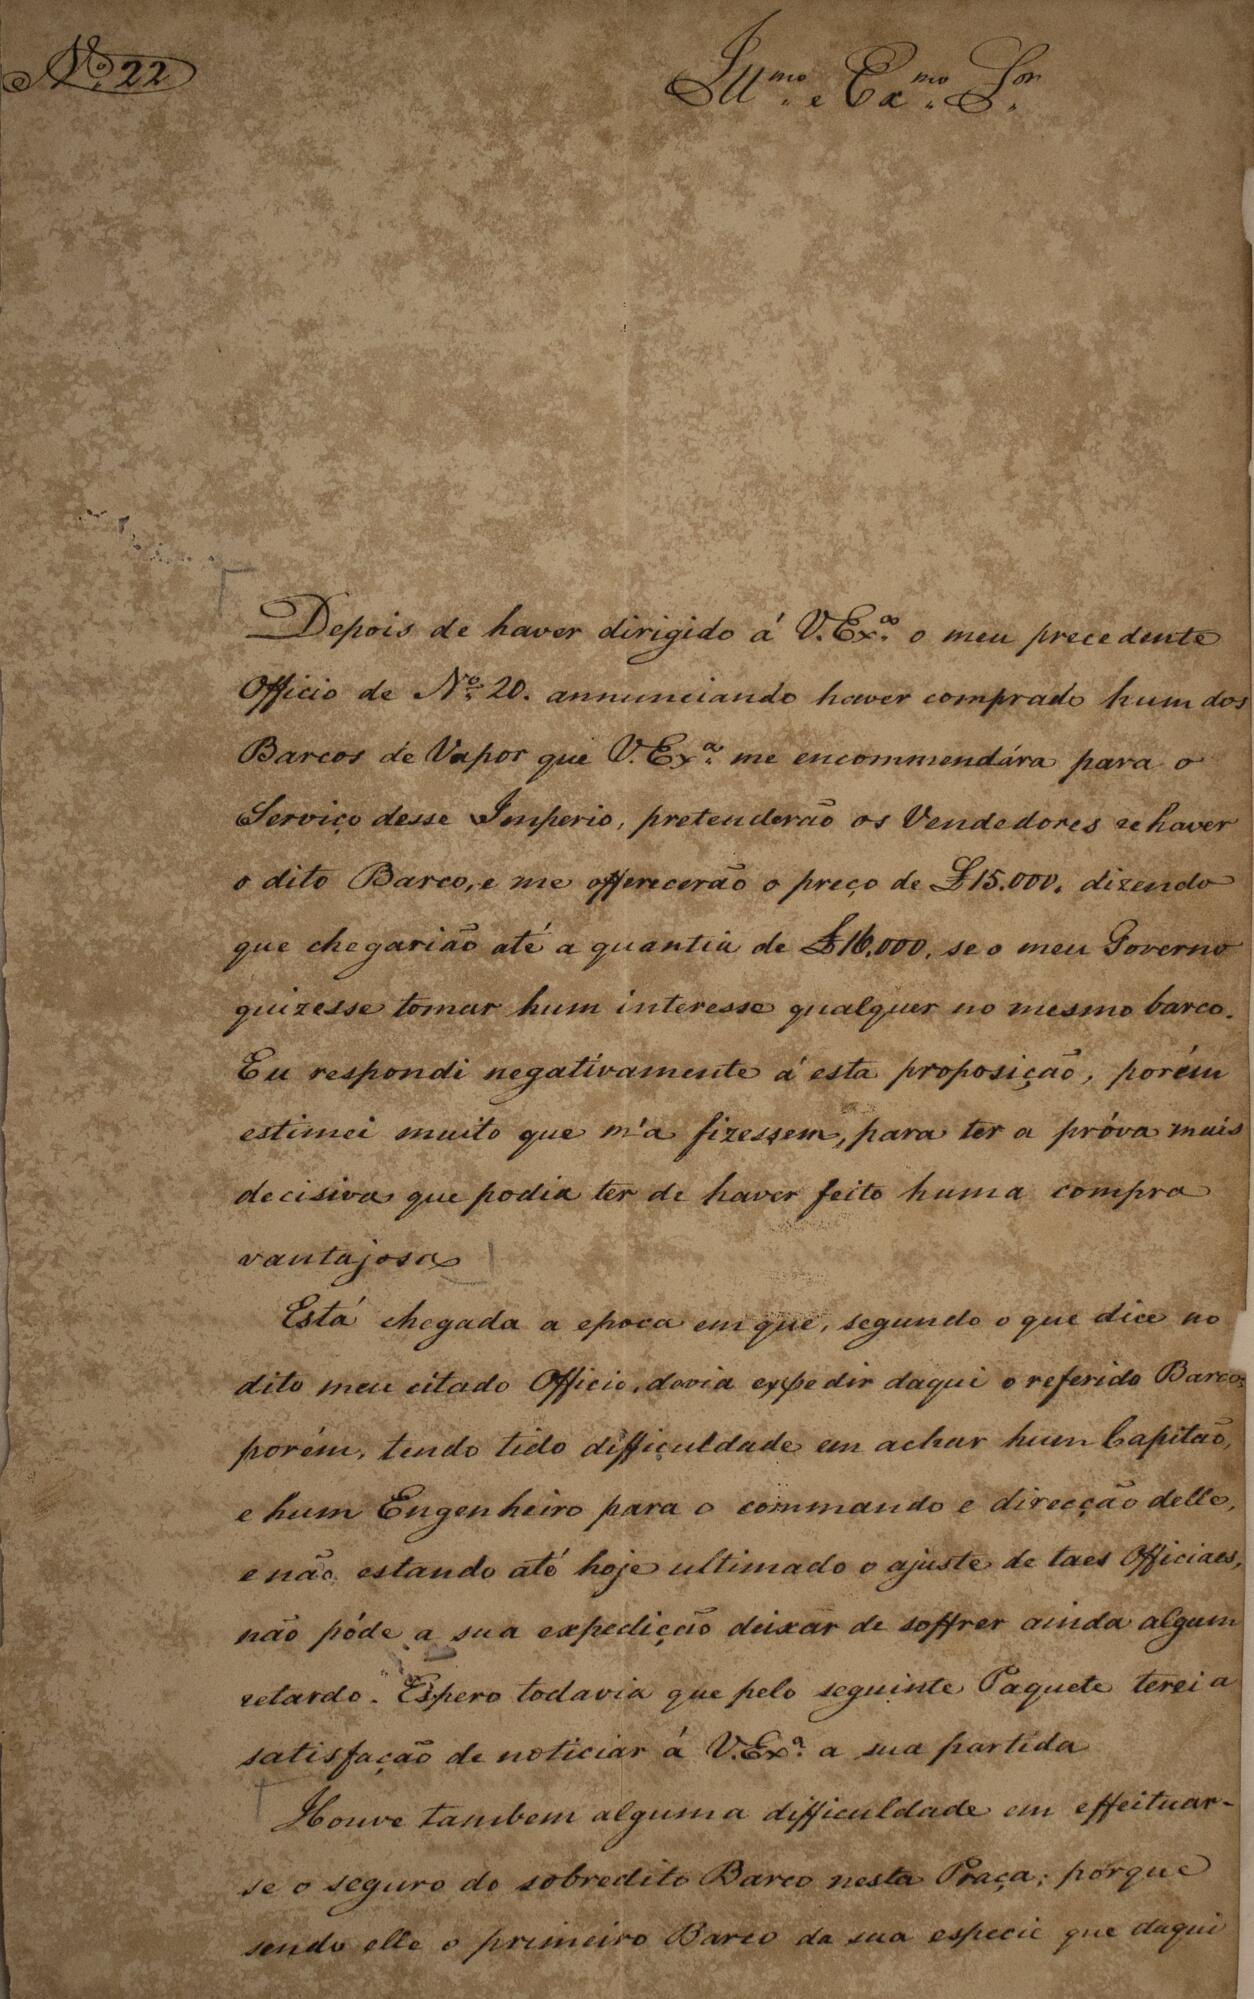 Nº 22
Illmo. e Exmo. Sor.
Depois de haver dirigido á V. Exª. o meu precedente
Officio de Nº 20. annunciando haver comprado hum dos
Barcos de Vapor que V. Exª. me encommendára para o
Serviço desse Imperio, pretenderão os Vendedores rehaver
o dito Barco, e me offerecerão o preço de £15.000. dizendo
que chegarião até a quantia de £16.000. se o meu Governo
quizesse tomar hum interesse qualquer no mesmo barco.
Eu respondi negativamente á esta proposição, porém
estimei muito que m'a fizessem, para ter a próva mais
decisiva que podia ter de haver feito huma compra
vantajosa
Está chegada a epoca em que, segundo o que dice no
dito meu citado Officio, devia expedir daqui o referido Barco;
porém, tendo tido difficuldade em achar hum Capitão,
e hum Engenheiro para o commando e direcção delle,
e não estando até hoje ultimado o ajuste de taes Officiaes,
não póde a sua expedição deixar de soffrer ainda algum
retardo. Espero todavia que pelo seguinte Paquete terei a
satisfação de noticiar á V. Exª. a sua partida
Houve tambem alguma difficuldade em effeituar-
se o seguro do sobredito Barco nesta Praça; porque
sendo elle o primeiro Barco da sua especie que daqui